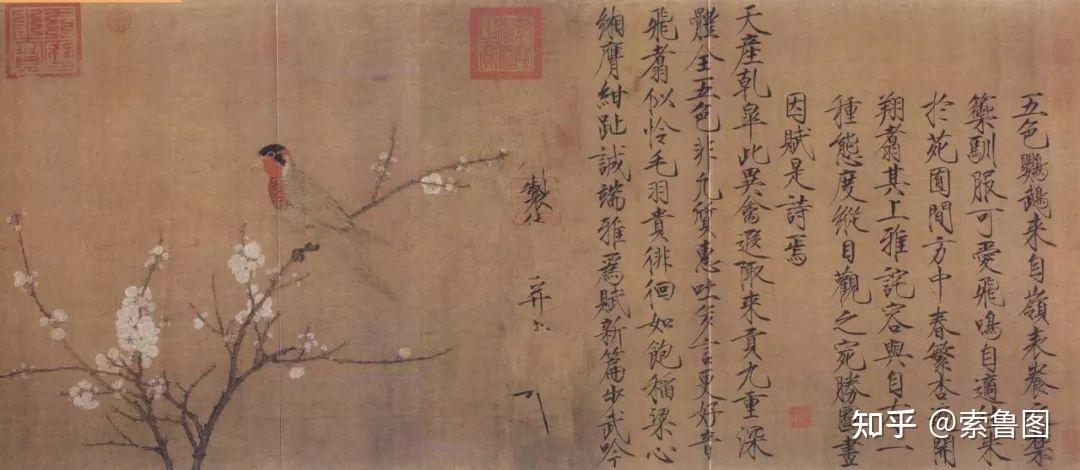 五色鸚鵡來自嶺表養之禁
籞馴服可愛飛鳴自適來
於苑囿間方中春繁杏開
翔翥其上雅詫容與自有一
種態度縱目觀之宛勝圖畫
因賦是詩焉
天產乾皐此異禽遐陬來貢九重深
體全五色非凡質惠吐多言更好音
飛翥似怜毛羽貴徘徊如飽稻粱心
緗膺紺趾誠端雅為賦新篇步武吟
製
知乎 @索鲁图